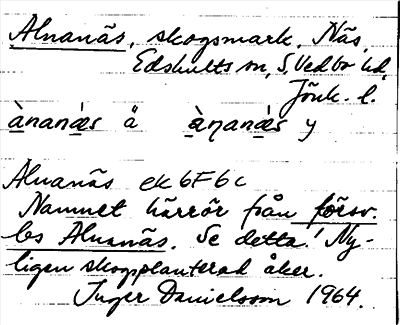 Alnanäs, skogsmark, Näs,
Edshults sn, S. Vedbo hd,
Jönk. l.
ànanä̀s ä ànanä̀s y
Alnanäs ek 6F6c
Namnet härrör från försv.
bs Alnanäs. Se detta! Ny-
ligen skogsplanterad åker.
Inger Danielsson 1964.